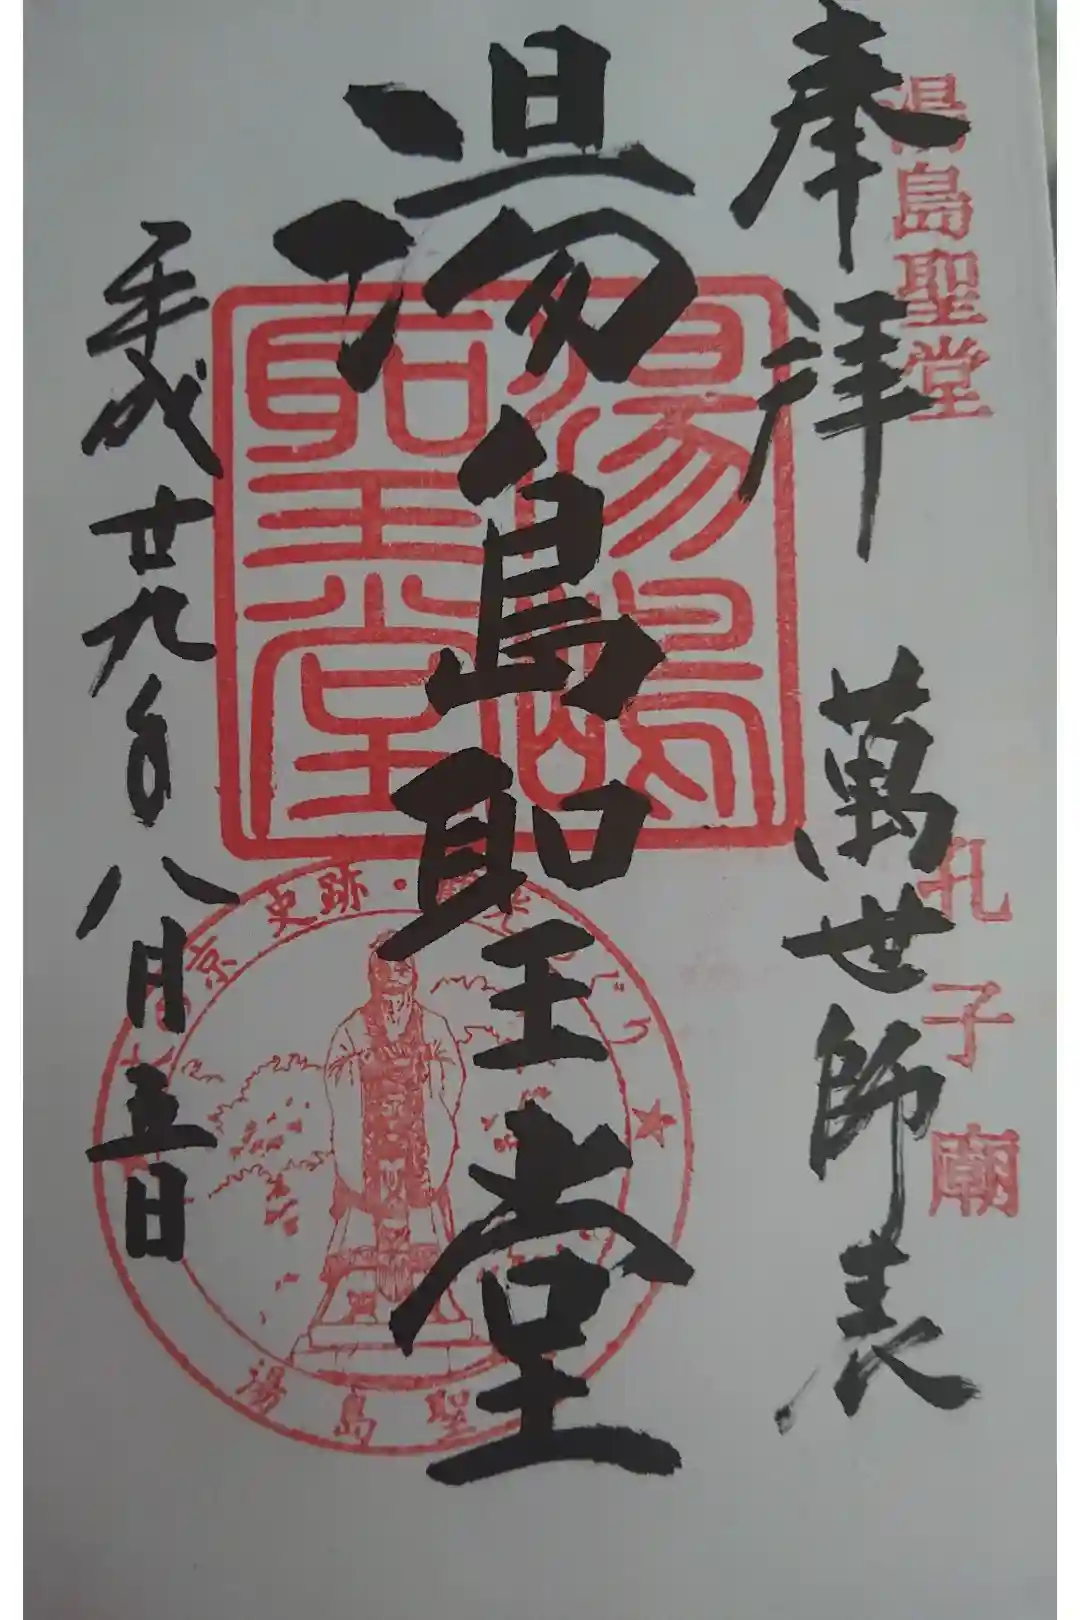 奉拝　萬世師表
湯島聖堂
孔子廟
湯島聖堂
湯島聖堂
平成廿九年八月五日
史跡・
湯島聖